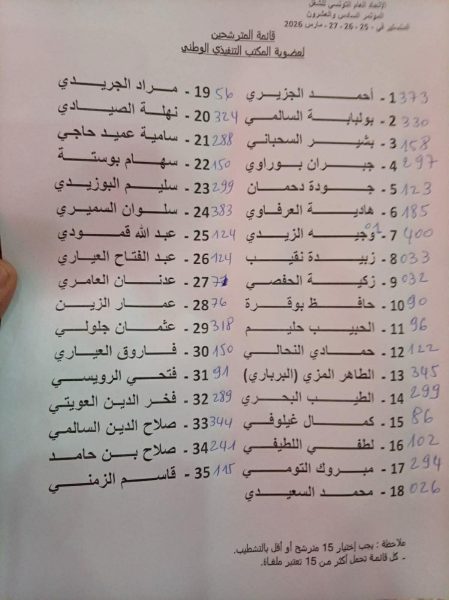 الاتحاد العام التونسي للشغل
المؤتمر السادس والعشرون
المنستير في 25 - 26 - 27 مارس 2026
قائمة المترشحين
لعضوية المكتب التنفيذي الوطني
1 - أحمد الجزيري 373
2 - بولبابة السالمي 330
3 - بشير السحباني 158
4 - جبران بوراوي 297
5 - جودة دحمان 123
6 - هادية العرفاوي 185
7 - وجيه الزيدي 400
8 - زبيدة نقيب 033
9 - زكية الحفصي 032
10 - حافظ بوقرة 90
11 - الحبيب حليم 96
12 - حمادي النحالي 122
13 - الطاهر المزي (البرباري) 345
14 - الطيب البحري 299
15 - كمال غيلوفي 86
16 - لطفي اللطيفي 102
17 - مبروك التومي 294
18 - محمد السعيدي 026
19 - مراد الجريدي 56
20 - نهلة الصيادي 324
21 - سامية عميد حاجي 288
22 - سهام بوستة 150
23 - سليم البوزيدي 299
24 - سلوان السميري 383
25 - عبد الله قمودي 124
26 - عبد الفتاح العياري 124
27 - عدنان العامري
28 - عمار الزين 76
29 - عثمان جلولي 318
30 - فاروق العياري 150
31 - فتحي الرويسي 91
32 - فخر الدين العويتي 289
33 - صلاح الدين السالمي 344
34 - صلاح بن حامد 241
35 - قاسم الزمني 115
ملاحظة : يجب إختيار 15 مترشح أو أقل بالتشطيب.
- كل قائمة تحمل أكثر من 15 تعتبر ملغاة.